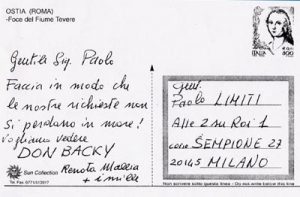 OSTIA (ROMA)
-Foce del Fiume Tevere
Gentile Sig. Paolo
Faccia in modo che
le nostre richieste non
si perdano in mare!
Vogliamo vedere
DON BACKY
Renata Mallia
+ i mille
Sun Collection
ITALIA
800
Gent.
Paolo LIMITI
Alle 2 su Rai 1
corso SEMPIONE 27
20145 MILANO
Non scrivere sotto questa linea - Do not write below this line